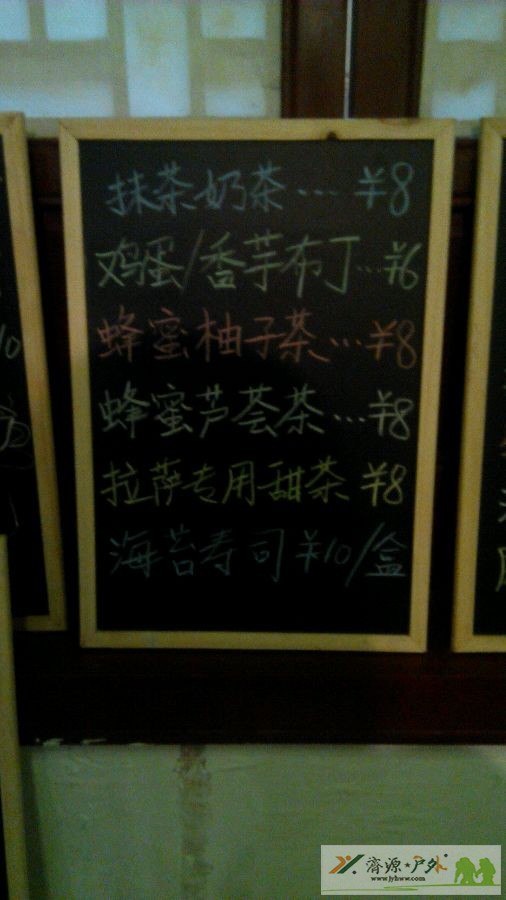 抹茶奶茶…¥8
鸡蛋/香芋布丁…¥6
蜂蜜柚子茶…¥8
蜂蜜芦荟茶…¥8
拉萨专用甜茶 ¥8
海苔寿司 ¥10/盒
10
济源★户外
www.jyhww.com